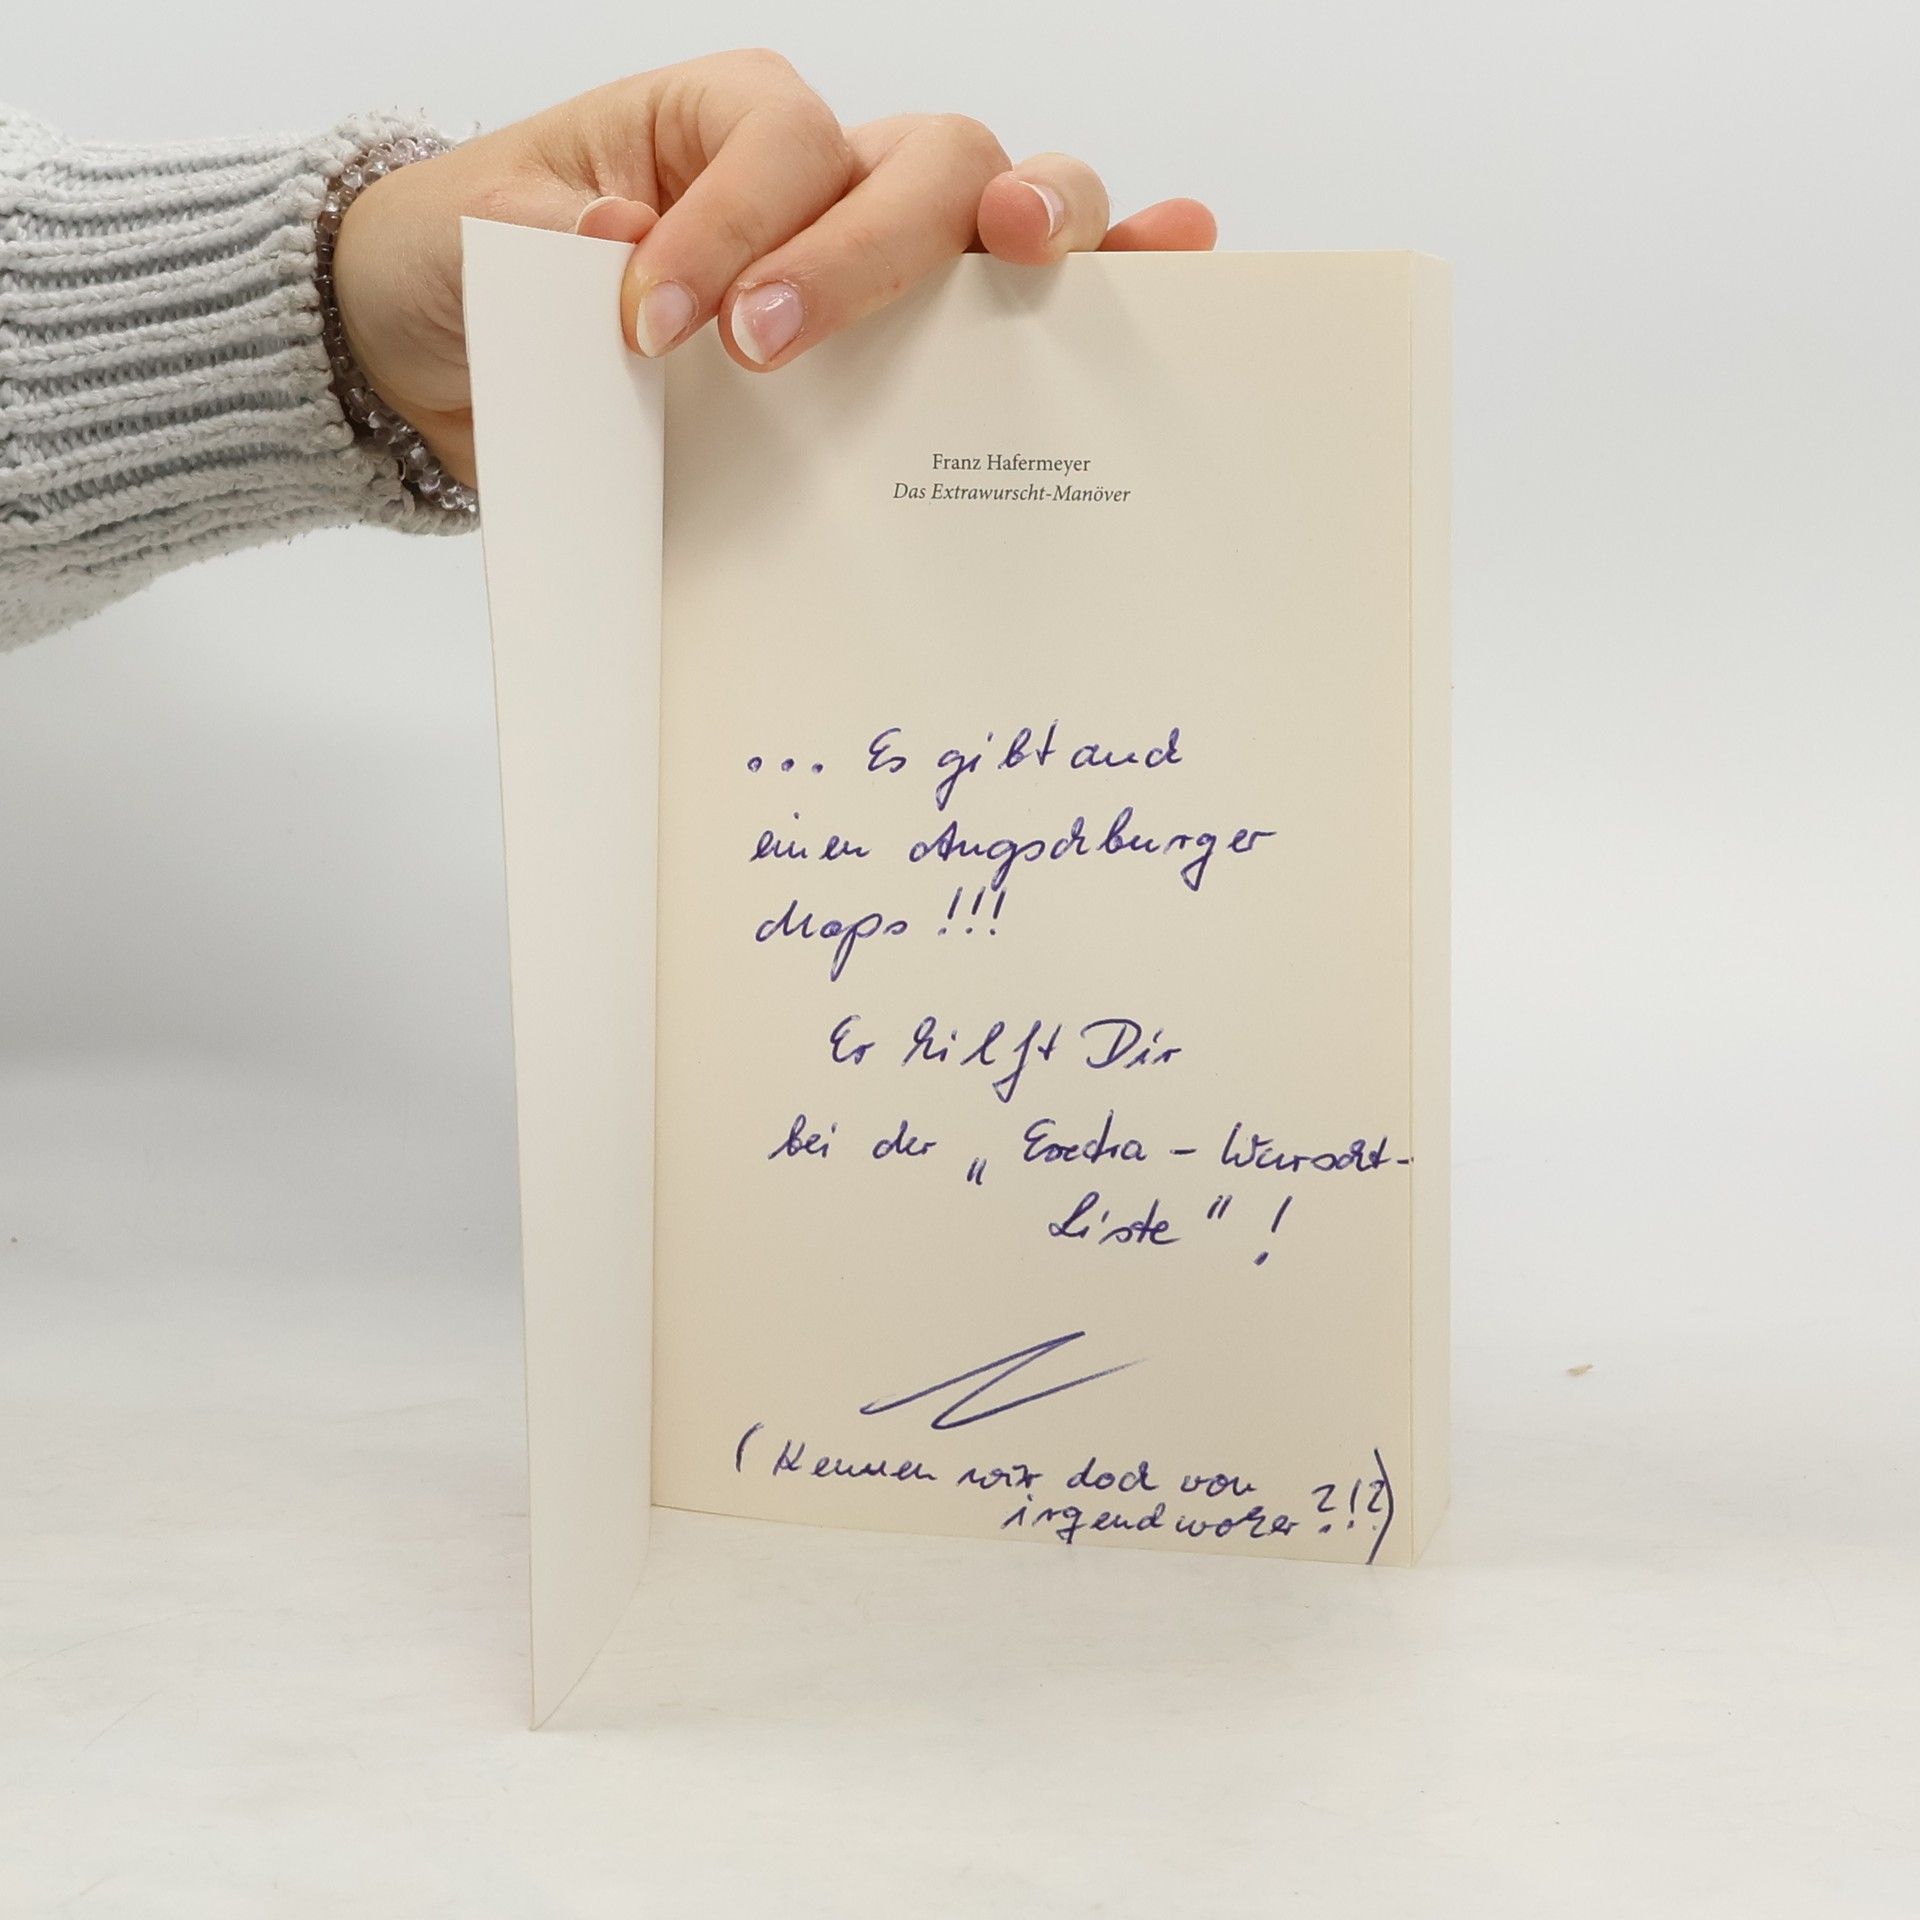 Franz Hafermeyer
Das Extrawurscht-Manöver
... Es gibt auch
einen Augschburger
Mops !!!
Er hilft Dir
bei der „Extra-Wurscht-
Liste" !
(Kennen wir doch von
irgendwoher ?!?)